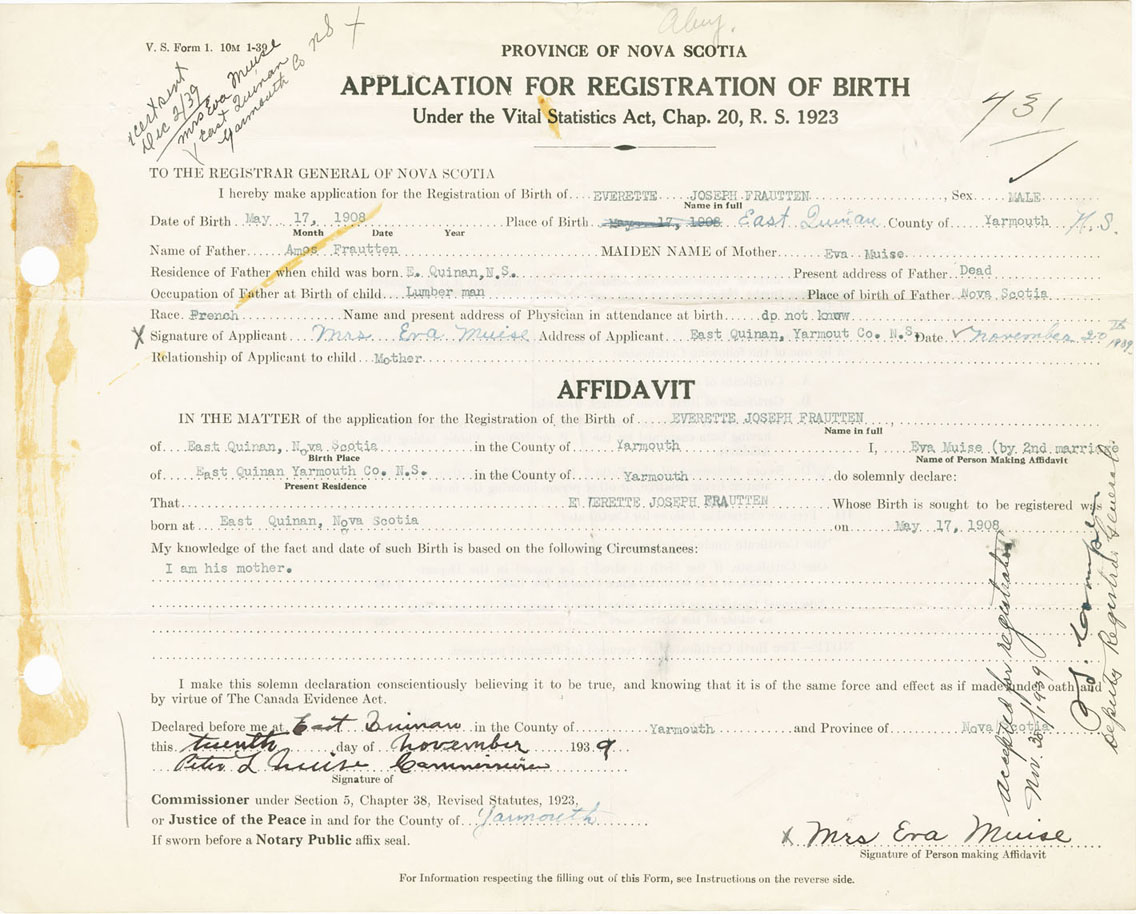 Abuy.
V. S. Form 1. 10M 1-39
cert sent
Dec 2/39
Mrs Eva Muise
East Quinan
Yarmouth Co NS
PROVINCE OF NOVA SCOTIA
APPLICATION FOR REGISTRATION OF BIRTH
Under the Vital Statistics Act, Chap. 20, R. S. 1923
431
TO THE REGISTRAR GENERAL OF NOVA SCOTIA
I hereby make application for the Registration of Birth of EVERETTE JOSEPH FRAUTTEN, Sex MALE
Name in full
Date of Birth May 17, 1908 Place of Birth May 17, 1908 East Quinan County of Yarmouth N.S.
Month Date Year
Name of Father Amos Frautten MAIDEN NAME of Mother Eva Muise
Residence of Father when child was born E. Quinan, N.S. Present address of Father Dead
Occupation of Father at Birth of child Lumber man Place of birth of Father Nova Scotia
Race French Name and present address of Physician in attendance at birth do not know
X Signature of Applicant Mrs. Eva Muise Address of Applicant East Quinan, Yarmout Co. N.S. Date November 20th 1939
Relationship of Applicant to child Mother
AFFIDAVIT
IN THE MATTER of the application for the Registration of the Birth of EVERETTE JOSEPH FRAUTTEN,
Name in full
of East Quinan, Nova Scotia in the County of Yarmouth I, Eva Muise (by 2nd marriage
Birth Place Name of Person Making Affidavit
of East Quinan Yarmouth Co. N.S. in the County of Yarmouth do solemnly declare:
Present Residence
That EVERETTE JOSEPH FRAUTTEN Whose Birth is sought to be registered was
born at East Quinan, Nova Scotia on May 17, 1908
My knowledge of the fact and date of such Birth is based on the following Circumstances:
I am his mother.
I make this solemn declaration conscientiously believing it to be true, and knowing that it is of the same force and effect as if made under oath and
by virtue of The Canada Evidence Act.
Declared before me at East Quinan in the County of Yarmouth and Province of Nova Scotia
this twenth day of November 1939
Peter L Muise Commissioner
Signature of
Commissioner under Section 5, Chapter 38, Revised Statutes, 1923,
or Justice of the Peace in and for the County of Yarmouth
If sworn before a Notary Public affix seal.
x Mrs Eva Muise
Signature of Person making Affidavit
accepted for registration
Nov. 30/1939
Deputy Registrar General
For Information respecting the filling out of this Form, see Instructions on the reverse side.